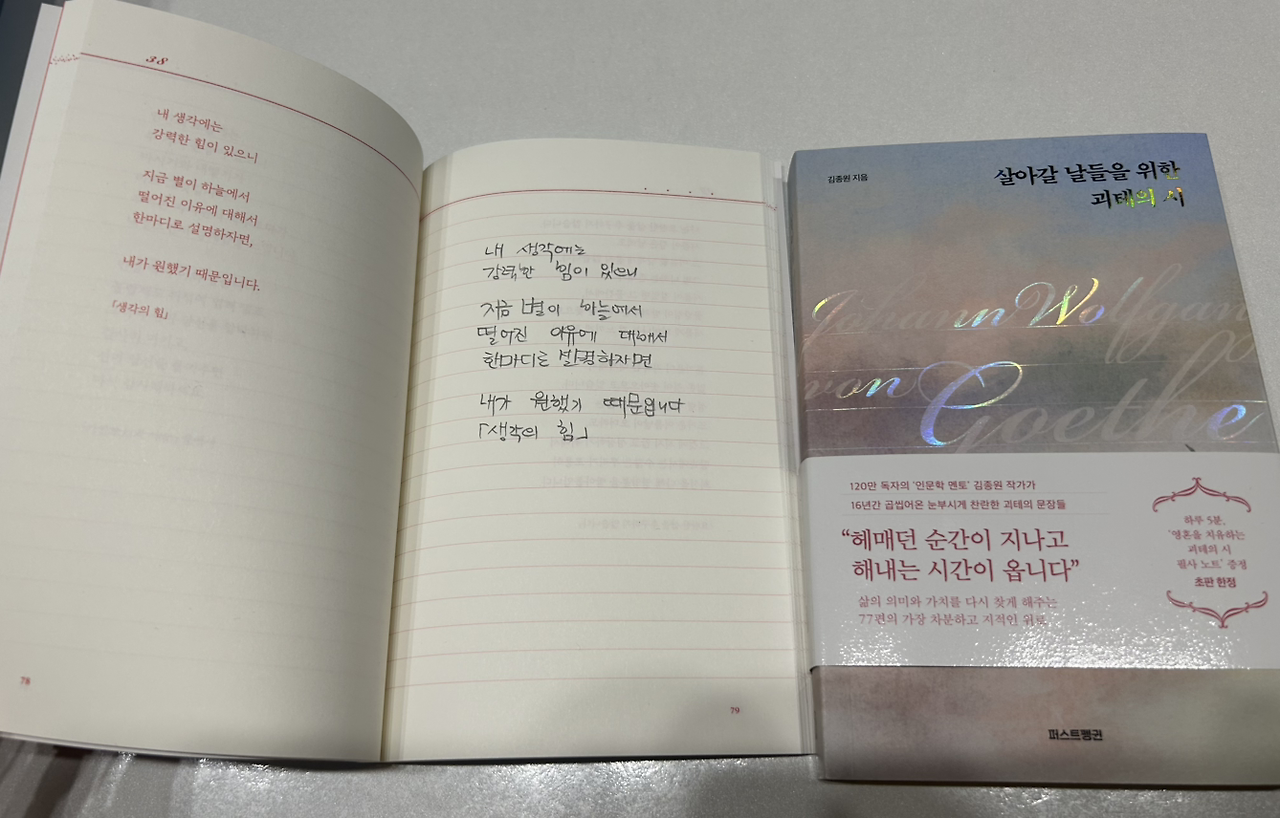 38
내 생각에는
강력한 힘이 있으니
지금 별이 하늘에서
떨어진 이유에 대해서
한마디로 설명하자면,
내가 원했기 때문입니다.
「생각의 힘」
78
내 생각에는
강력한 힘이 있으니
지금 별이 하늘에서
떨어진 이유에 대해서
한마디로 설명하자면
내가 원했기 때문입니다
「생각의 힘」
79
김종원 지음
살아갈 날들을 위한
괴테의 시
Johann Wolfgang
von Goethe
120만 독자의 '인문학 멘토' 김종원 작가가
16년간 곱씹어온 눈부시게 찬란한 괴테의 문장들
“헤매던 순간이 지나고
해내는 시간이 옵니다”
삶의 의미와 가치를 다시 찾게 해주는
77편의 가장 차분하고 지적인 위로
하루 5분,
'영혼을 치유하는
괴테의 시
필사 노트' 증정
초판 한정
퍼스트펭귄